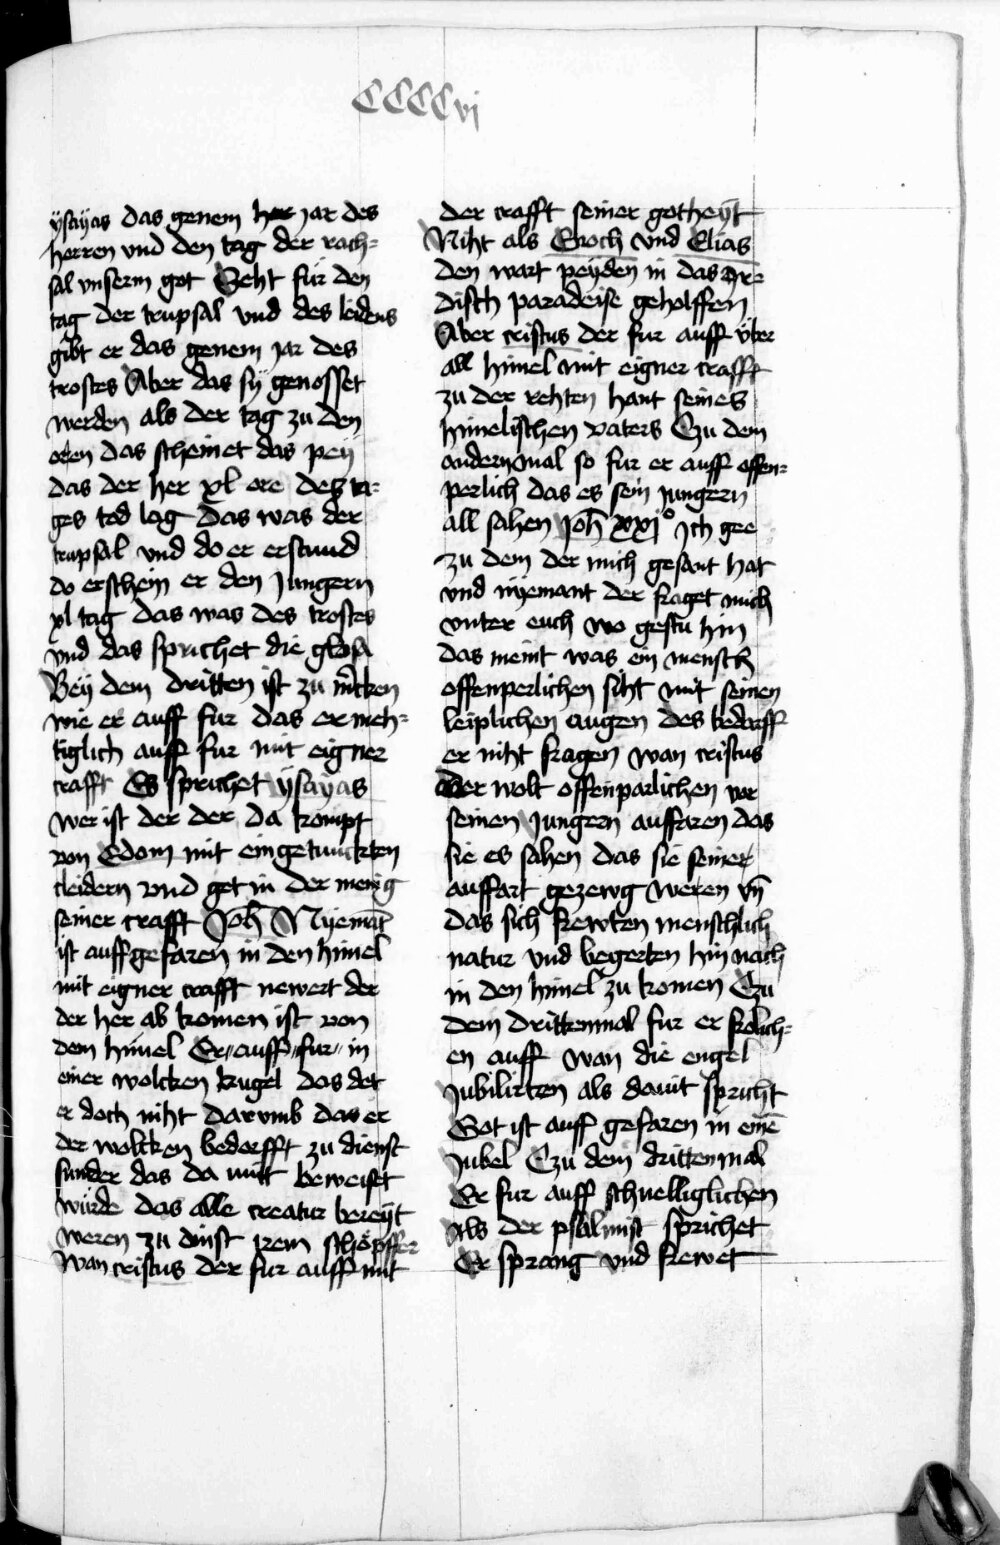 CCCCvj
ysayas das genem jar des
herren vnd den tag der rach=
sal vnserm got Seht fur den
tag der trupsal vnd des leidens
gibt er das genem jar des
trostes Aber das sy genosset
werden als der tag zu den
oren das scheinet das pey
das der her xl ore des ta=
ges tod lag Das was der
trupsal vnd do er erstund
do erschein er den Jungern
xl tag das was des trostes
vnd das sprichet die glosa
Bey dem dritten ist zu mercken
wie er auff fur das er meh=
tiglich auff fur mit eigner
crafft Es sprichet ysayas
wer ist der der da kompt
von Edom mit eingetunckten
cleidern vnd get in der menig
seiner crafft Joh Nyemat
ist auffgefaren in den himel
mit eigner crafft newert der
der her ab komen ist von
dem himel Er auff fur in
einer wolcken kugel das det
er doch niht darvmb das er
der wolcken bedorfft zu dienst
sunder das da mitt beweiset
wurde das alle creatur bereyt
weren zu dinst irem schöpffer
wan cristus der fur auff mit
der crafft seiner gotheyt
Niht als Enoch vnd Elias
den wart peyden in das yre
disch paradeise geholffen
Aber cristus der fur auff vber
all himel mit eigner crafft
zu der rehten hant seines
himelischen vaters Czu dem
andernmal so fur er auff offen=
perlich das es sein jungern
all sahen Joh xxj° Ich gee
zu dem der mich gesant hat
vnd nyemant der fraget mich
vnter euch wo gestu hin
das meint was ein mensch
offenperlichen siht mit seinen
leiplichen augen des bedorff
er niht fragen wan cristus
der wolt offenparlichen vor
seinen Jungern auffaren das
sie es sahen das sie seiner
auffart gezewg weren vn̄
das sich frewten menschlich
natur vnd begerten hin nach
in den himel zu komen Czu
dem drittenmal fur er frolich=
en auff wan die engel
Jubilirten als dauit spricht
Got ist auff gefaren in eine
Jubel Czu dem drittenmal
Er fur auff schnelliglichen
Als der psalmist sprichet
Er sprang vnd frewet